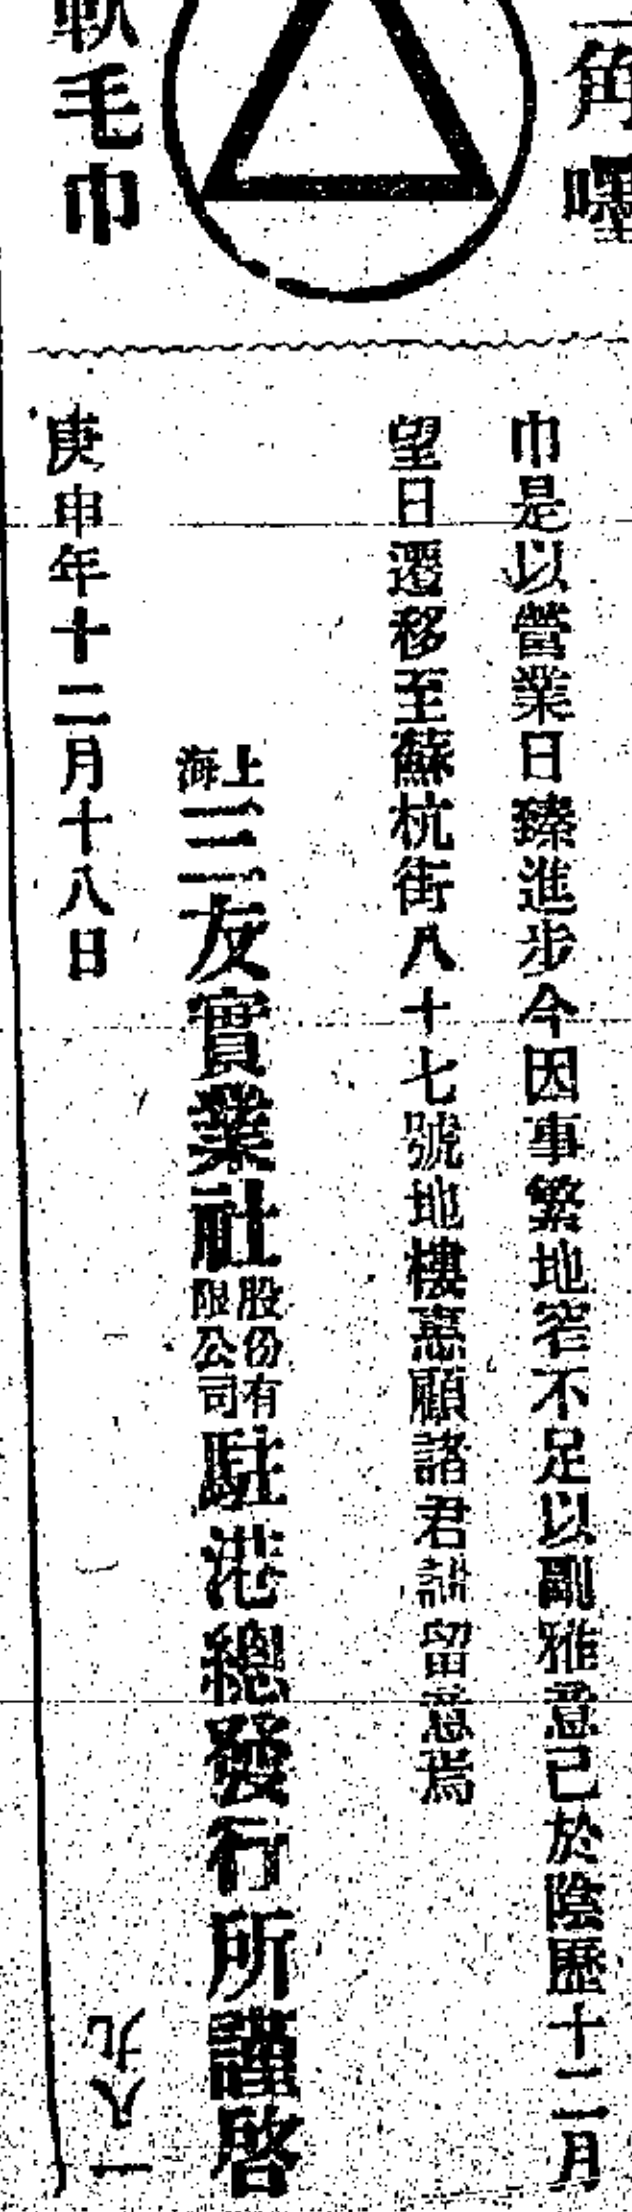 角嘜
軟毛巾
巾是以營業日臻進步今因事繁地窄不足以副雅意已於陰歷十二月
望日遷移至蘇杭街八十七號地樓惠顧諸君請留意焉
上海三友實業社股份有限公司駐港總發行所謹啓
庚申年十二月十八日
一八九